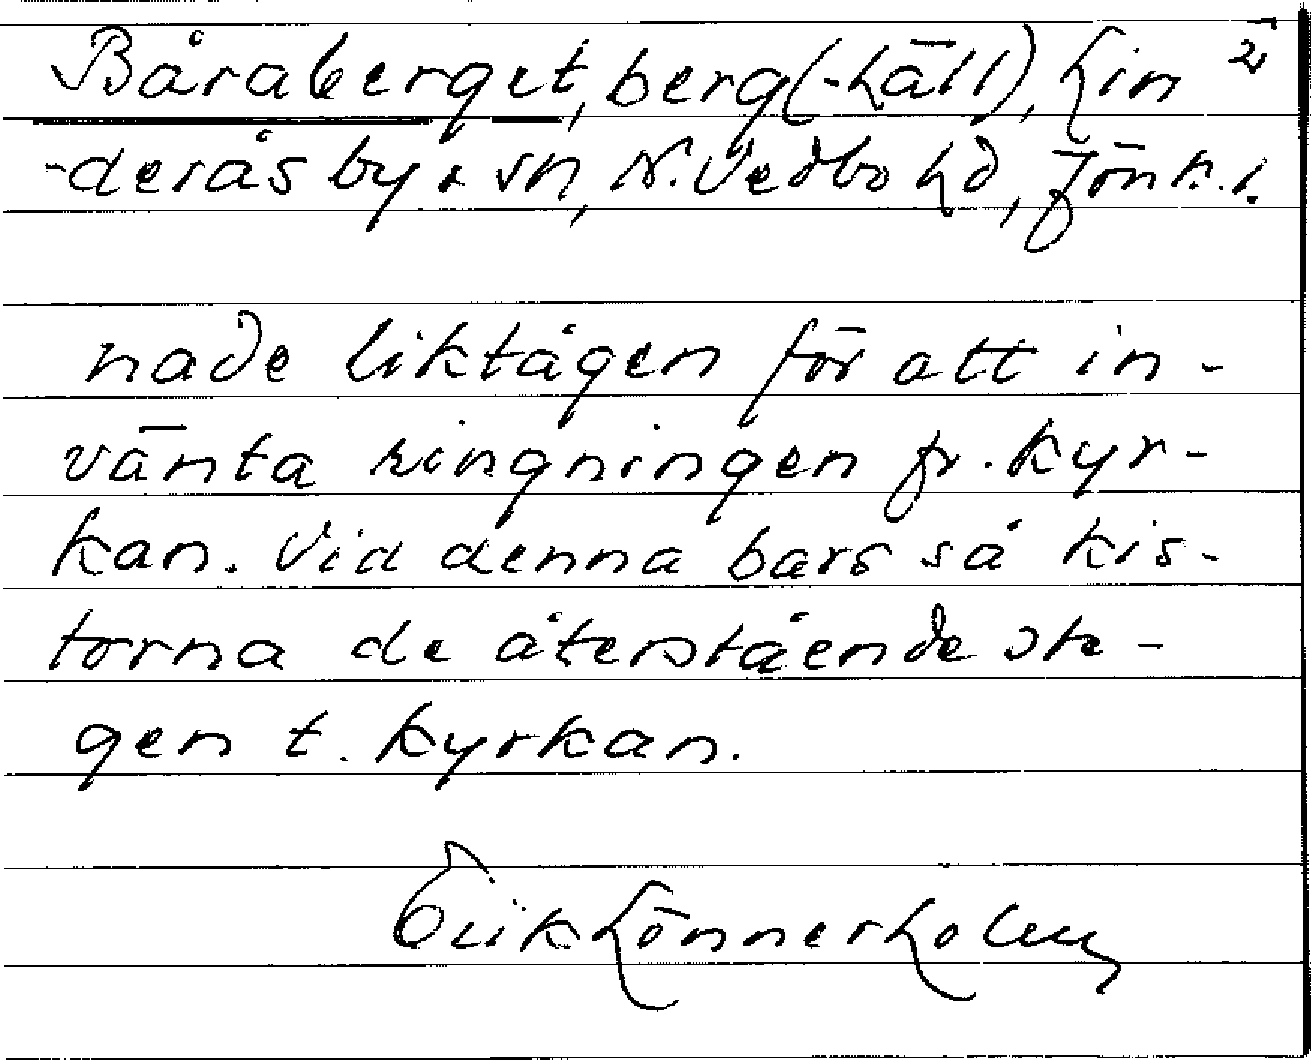 Båraberget, berg(-häll), Lin 2
-derås by o sn, N. Vedbo hd, Jönk. l.
nade liktågen för att in-
vänta ringningen fr. kyr-
kan. Vid denna bars så kis-
torna de återstående ste-
gen t. kyrkan.
Erik Lönnerholm